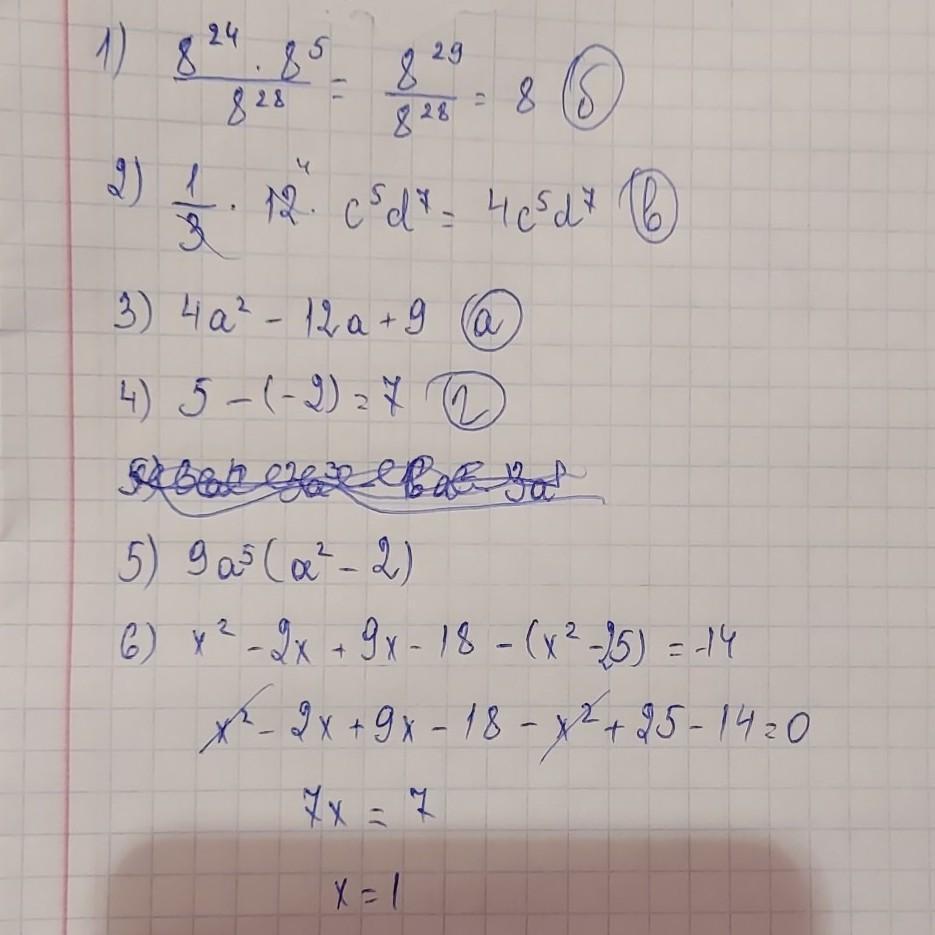 1) 8^24 · 8^5 / 8^28 = 8^29 / 8^28 = 8 б
2) 1/3 · 12^4 · c^5d^7 = 4c^5d^7 в
3) 4a² - 12a + 9 а
4) 5 - (-2) = 7 г
5) 9a^5(a² - 2)
6) x² - 2x + 9x - 18 - (x² - 25) = -14
x² - 2x + 9x - 18 - x² + 25 - 14 = 0
7x = 7
x = 1